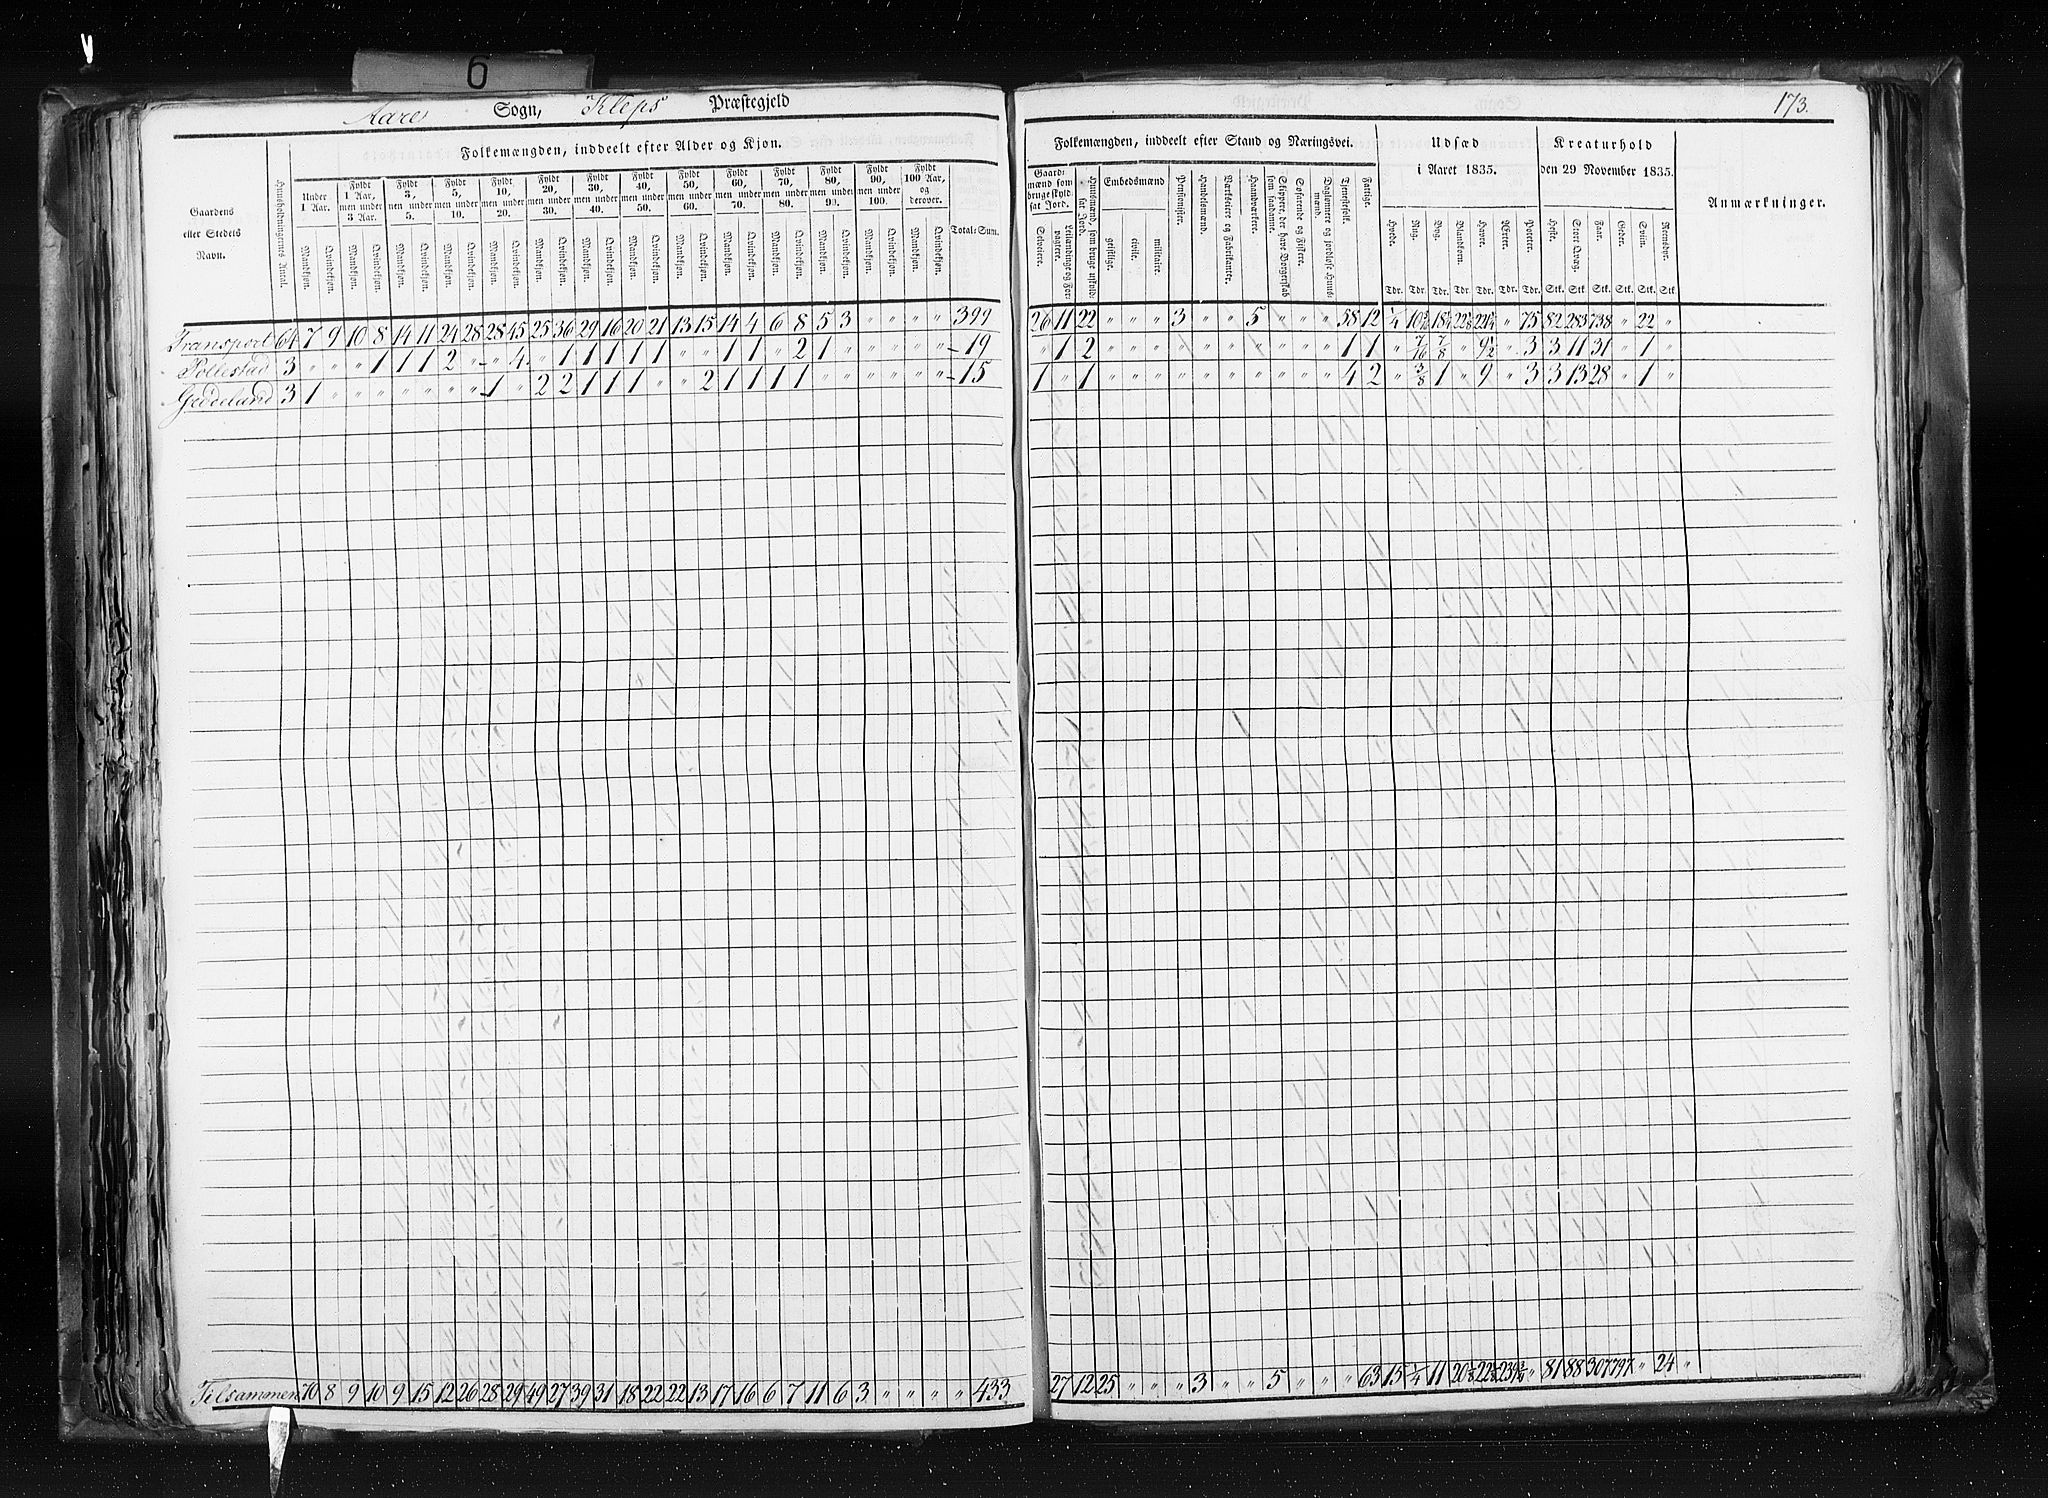 6
Aare Sogn, Kleps Præstegjeld
173.
Folkemængden, inddeelt efter Alder og Kjøn.
Folkemængden, inddeelt efter Stand og Næringsvei.
Udsæd i Aaret 1835.
Kreaturhold den 29 November 1835.
Anmærkninger.
Gaardens eller Stedets Navn.
Huusholdningernes Antal.
Under 1 Aar.
Fyldt 1 Aar, men under 3 Aar.
Fyldt 3, men under 5.
Fyldt 5, men under 10.
Fyldt 10, men under 20.
Fyldt 20, men under 30.
Fyldt 30, men under 40.
Fyldt 40, men under 50.
Fyldt 50, men under 60.
Fyldt 60, men under 70.
Fyldt 70, men under 80.
Fyldt 80, men under 90.
Fyldt 90, men under 100.
Fyldt 100 Aar, og derover.
Total-Sum.
Mandkjøn. Qvindekjøn. Mandkjøn. Qvindekjøn. Mandkjøn. Qvindekjøn. Mandkjøn. Qvindekjøn. Mandkjøn. Qvindekjøn. Mandkjøn. Qvindekjøn. Mandkjøn. Qvindekjøn. Mandkjøn. Qvindekjøn. Mandkjøn. Qvindekjøn. Mandkjøn. Qvindekjøn. Mandkjøn. Qvindekjøn. Mandkjøn. Qvindekjøn. Mandkjøn. Qvindekjøn. Mandkjøn. Qvindekjøn.
Gaardmænd som bruge skyldsat Jord.
Selveiere.
Leilændinge og Forpagtere.
Huusmænd, som bruge uskyldsat Jord.
Embedsmænd
geistlige.
civile.
militaire.
Pensionister.
Handelsmænd.
Værkseiere og Fabrikanter.
Haandværkere.
Skippere, der have Borgerskab som saadanne.
Søfarende og Fiskere.
Daglønnere og jordløse Huusmænd.
Tjenestefolk.
Fattige.
Hvede. Rug. Byg. Blandkorn. Havre. Erter. Poteter.
Heste. Stort Qvæg. Faar. Geder. Sviin. Rensdyr.
Tdr. Tdr. Tdr. Tdr. Tdr. Tdr. Tdr. Stk. Stk. Stk. Stk. Stk. Stk.
Transport 64 7 9 10 8 14 11 24 28 28 45 25 36 29 16 20 21 13 15 14 4 6 8 5 3 " " " " 399 26 11 22 " " " 3 " " 5 " " " 58 12 1/4 75 82 283 738 " 22 "
Pollestad 3 " " " 1 1 1 2 " " 4 " 1 1 1 1 1 " " 1 1 " 2 1 " " " " " 19 " 1 2 " " " " " " " " " " 1 1 " 7/16 7/8 " 9 1/2 " 3 3 11 31 " 1 "
3 1 " " " " " " " 1 " 2 2 1 1 1 " " 2 1 1 1 1 " " " " " " 15 1 " 1 " " " " " " " " " " 4 2 " 3/8 1 " 9 " 3 3 13 28 " 1 "
Tilsammen 70 8 9 10 9 15 12 26 28 29 49 27 39 31 18 22 22 13 17 16 6 7 11 6 3 " " " " 433 27 12 25 " " " 3 " " 5 " " " 63 15 1/4 " 81 88 307 797 " 24 "